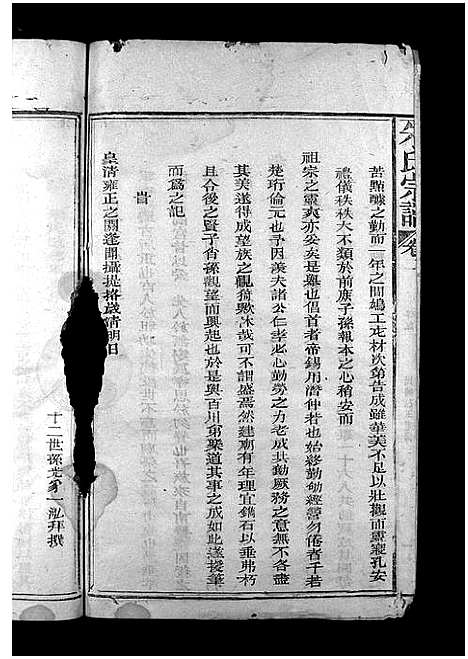 氏宗譜 卷一
苦點醵之勤而一年之間鳩工庀材次第告成雖華美不足以壯觀而靈寢孔安
禮儀秩秩大不類於前庻子孫報本之心稍安而
祖宗之靈爽亦妥矣是舉也倡首者帝錫用潛仲若也始終勤劬經營勿倦者千若
楚珩倫元也予因羨夫諸公仁孝必心勤勞之力老成共勷厥務之意無不各盡
其美遂得成望族之觀猗歟休哉可不謂盛焉然建廟有年理宜鐫石以垂弗朽
且合後之賢子肖孫觀望而興起也於與百川弟聚道其事之成如此遂援筆
而爲之記
旹
皇清雍正之閼逢閹攝提格歲清明日
十二世孫 一泓拜撰